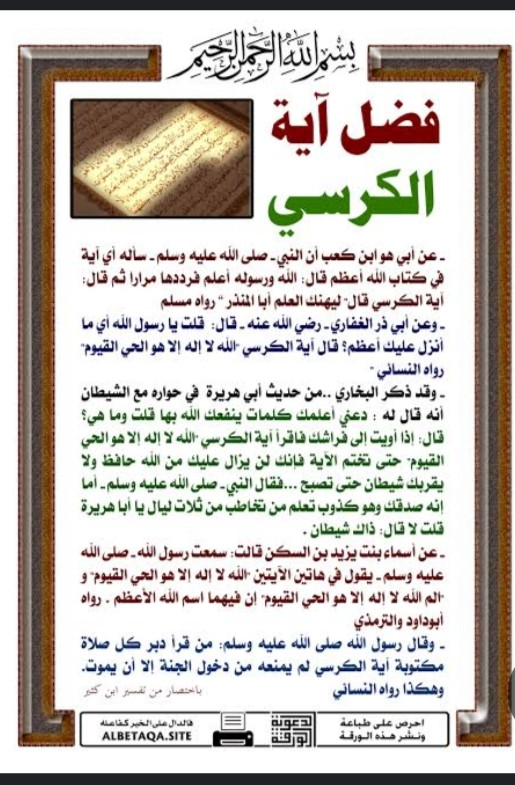 بسم الله الرحمن الرحيم
فضل آية
الكرسي
ـ عن أبي هو ابن كعب أن النبي ـ صلى الله عليه وسلم ـ سأله أي آية
في كتاب الله أعظم قال: الله ورسوله أعلم فرددها مرارا ثم قال:
آية الكرسي قال" ليهنك العلم أبا المنذر " رواه مسلم
ـ وعن أبي ذر الغفاري ـ رضي الله عنه ـ قال: قلت يا رسول الله أي ما
أنزل عليك أعظم؟ قال آية الكرسي "الله لا إله إلا هو الحي القيوم"
رواه النسائي "
ـ وقد ذكر البخاري ..من حديث أبي هريرة في حواره مع الشيطان
أنه قال له : دعني أعلمك كلمات ينفعك الله بها قلت وما هي؟
قال: إذا أويت إلى فراشك فاقرأ آية الكرسي "الله لا إله إلا هو الحي
القيوم" حتى تختم الآية فإنك لن يزال عليك من الله حافظ ولا
يقربك شيطان حتى تصبح ...فقال النبي ـ صلى الله عليه وسلم ـ أما
إنه صدقك وهو كذوب تعلم من تخاطب من ثلاث ليال يا أبا هريرة
قلت لا قال: ذاك شيطان .
ـ عن أسماء بنت يزيد بن السكن قالت: سمعت رسول الله ـ صلى الله
عليه وسلم ـ يقول في هاتين الآيتين "الله لا إله إلا هو الحي القيوم" و
"الم الله لا إله إلا هو الحي القيوم" إن فيهما اسم الله الأعظم . رواه
أبوداود والترمذي
ـ وقال رسول الله صلى الله عليه وسلم: من قرأ دبر كل صلاة
مكتوبة آية الكرسي لم يمنعه من دخول الجنة إلا أن يموت.
وهكذا رواه النسائي
باختصار من تفسير ابن كثير
احرص على طباعة
ونشر هذه الورقة
الورقة
الدعوية
فالدال على الخير كفاعله
ALBETAQA.SITE